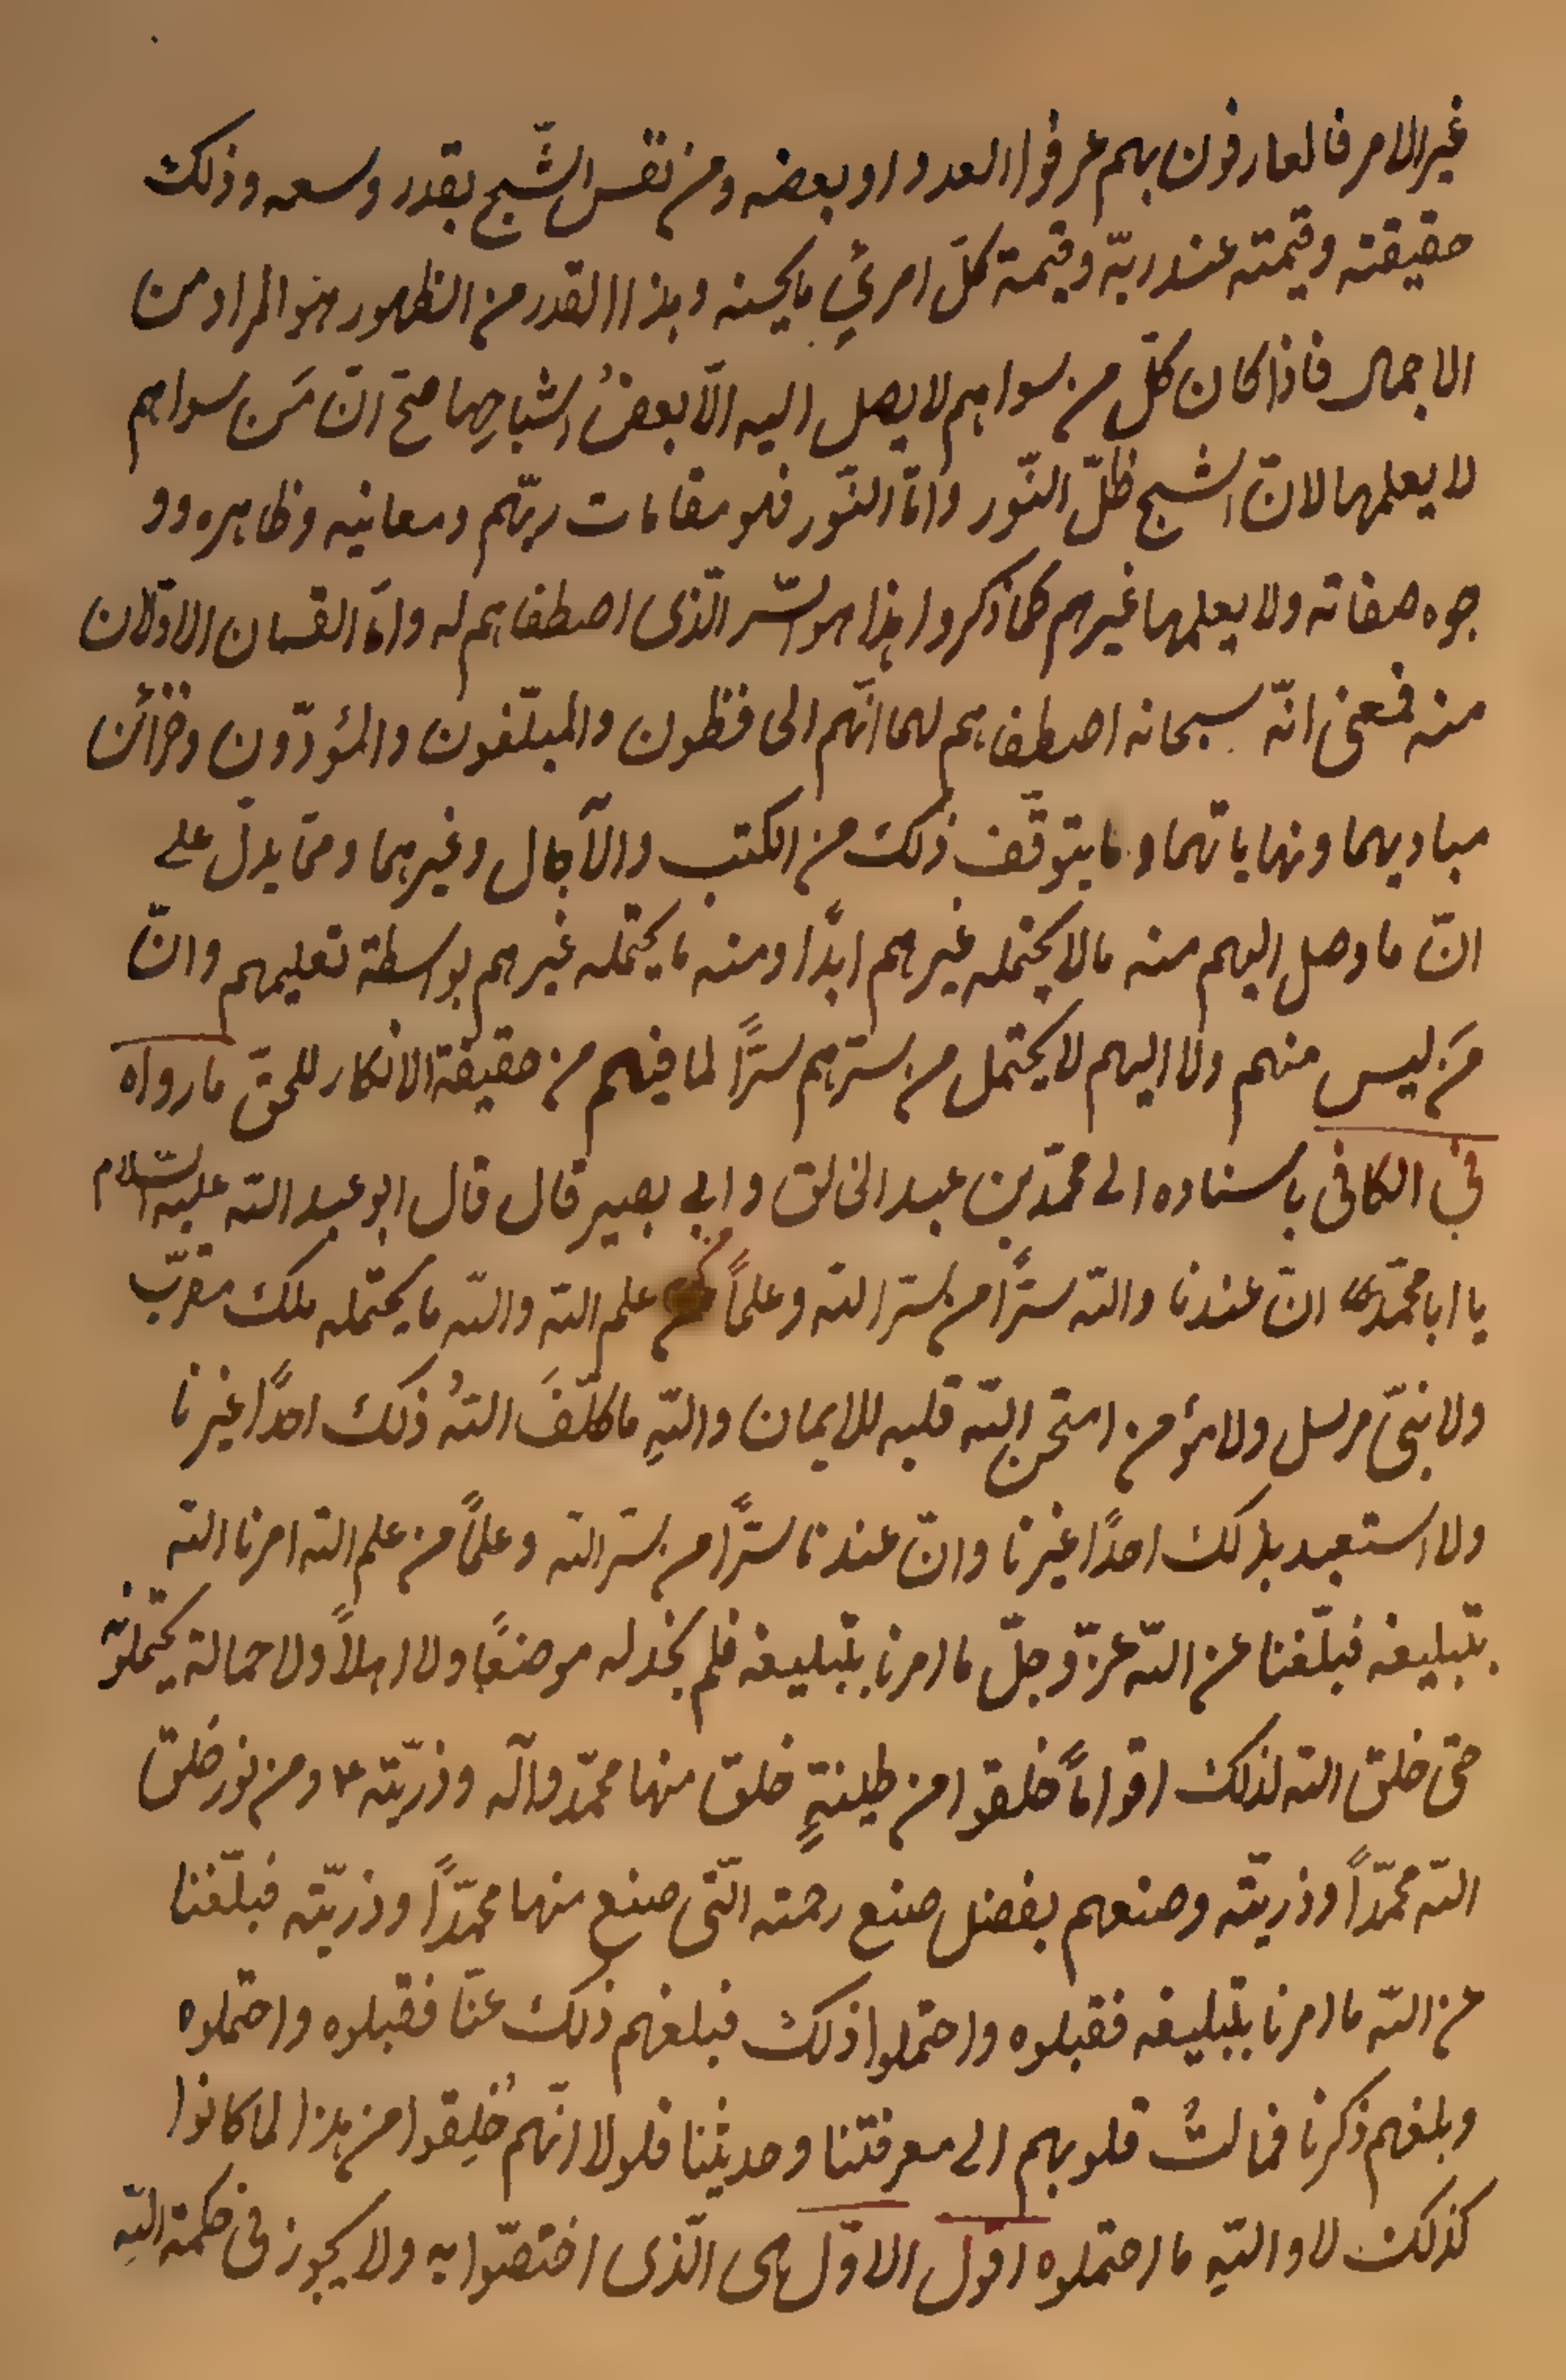 غير الامر فالعارفون بهم عرفوا العدد او بعضه ومن نفس الشّبح بقدر وسعه وذلك
حقيقته وقيمته عند ربّه وقيمة كلّ امرئٍ ما يحسنه وبهذا القدر من الظهور هو المراد من
الاجمال فاذا كان كلّ من سواهم لا يصل اليه الّا بعضُ اشباحِها صحّ انّ مَن سواهم
لا يعلمها لانّ الشبح ظلّ النّور وامّا النّور فهو مقامات ربّهم ومعانيه وظاهره وو
جوه صفاته ولا يعلمها غيرهم كما ذكروا هذا هو السّر الّذى اصطفاهم له وامّا القسمان الاوّلان
منه فمعنى انّه سبحانه اصطفاهم لهما انّهم الحافظون والمبلّغون والمؤدّون وخزائن
مباديهما ونهاياتهما وما يتوقّف ذلك من الكتب والآجال وغيرهما وممّا يدلّ على
انّ ما وصل اليهم منه ما لا يحتمله غيرهم ابدًا ومنه ما يحتمله غيرهم بواسطة تعليمهم وانّ
مَن ليس منهم ولا اليهم لا يحتمل من سترهم سترًا لما فيهم من حقيقة الانكار للحقّ ما رواه
فى الكافى باسناده الى محمّد بن عبد الخالق وابى بصير قال قال ابو عبد الله عليه السّلام
يا ابا محمّد انّ عندنا والله سترًا من ستر الله وعلمًا من علم الله والله ما يحتمله ملك مقرّب
ولا نبىّ مرسل ولا مؤمن امتحن الله قلبه للايمان واللهِ ما كلّفَ اللهُ ذلك احدًا غيرنا
ولا استعبد بذلك احدًا غيرنا وانّ عندنا سترًا من ستر الله وعلمًا من علم الله امرنا الله
بتبليغه فبلّغنا عن الله عزّ وجلّ ما امرنا بتبليغه فلم نجد له موضعًا ولا اهلاً ولا حمالة يحتملونه
حتى خلق الله لذلك اقوامًا خلقوا من طينةٍ خلق منها محمّد وآله وذرّيّته ع ومن نور خلق
الله محمّدًا وذريّته وصنعهم بفضل صنع رحمته الّتى صنع منها محمّدًا وذريّته فبلّغنا
عن الله ما امرنا بتبليغه فقبلوه واحتملوا ذلك فبلغهم ذلك عنّا فقبلوه واحتملوه
وبلغهم ذكرنا فمالت قلوبهم الى معرفتنا وحديثنا فلولا انّهم خُلِقوا من هذا لما كانوا
كذلك لا واللهِ ما احتملوه اقول الاوّل هى الّذى اختصّوا به ولا يجوز فى حكمة اللهِ